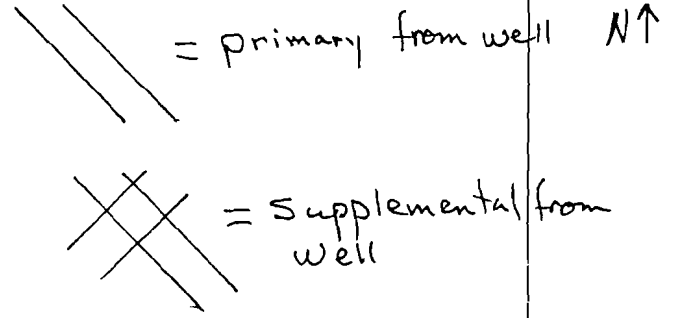 = primary from well N↑
= Supplemental from
well